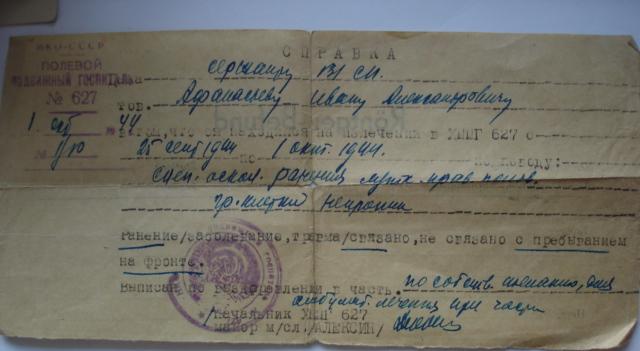 НКО-СССР
ПОЛЕВОЙ
ПОДВИЖНЫЙ ГОСПИТАЛЬ
№ 627
1 окт 44
С П Р А В К А
сержанту
тов. Афанасьеву Ивану Александровичу
в том, что он находился на излечении в ХППГ 627 с
25 сент 1944 по 1 окт. 1944. по поводу:
слеп. оскол. ранения мягк.
гр. клетки
ранение/заболевание, травма/связано, не связано с пребыванием
на фронте.
Выписан по выздоровлении в часть. по собств. желанию, для
амбулат. лечения при части
Начальник ХППГ 627
майор м/сл. /АЛЕКСИН/